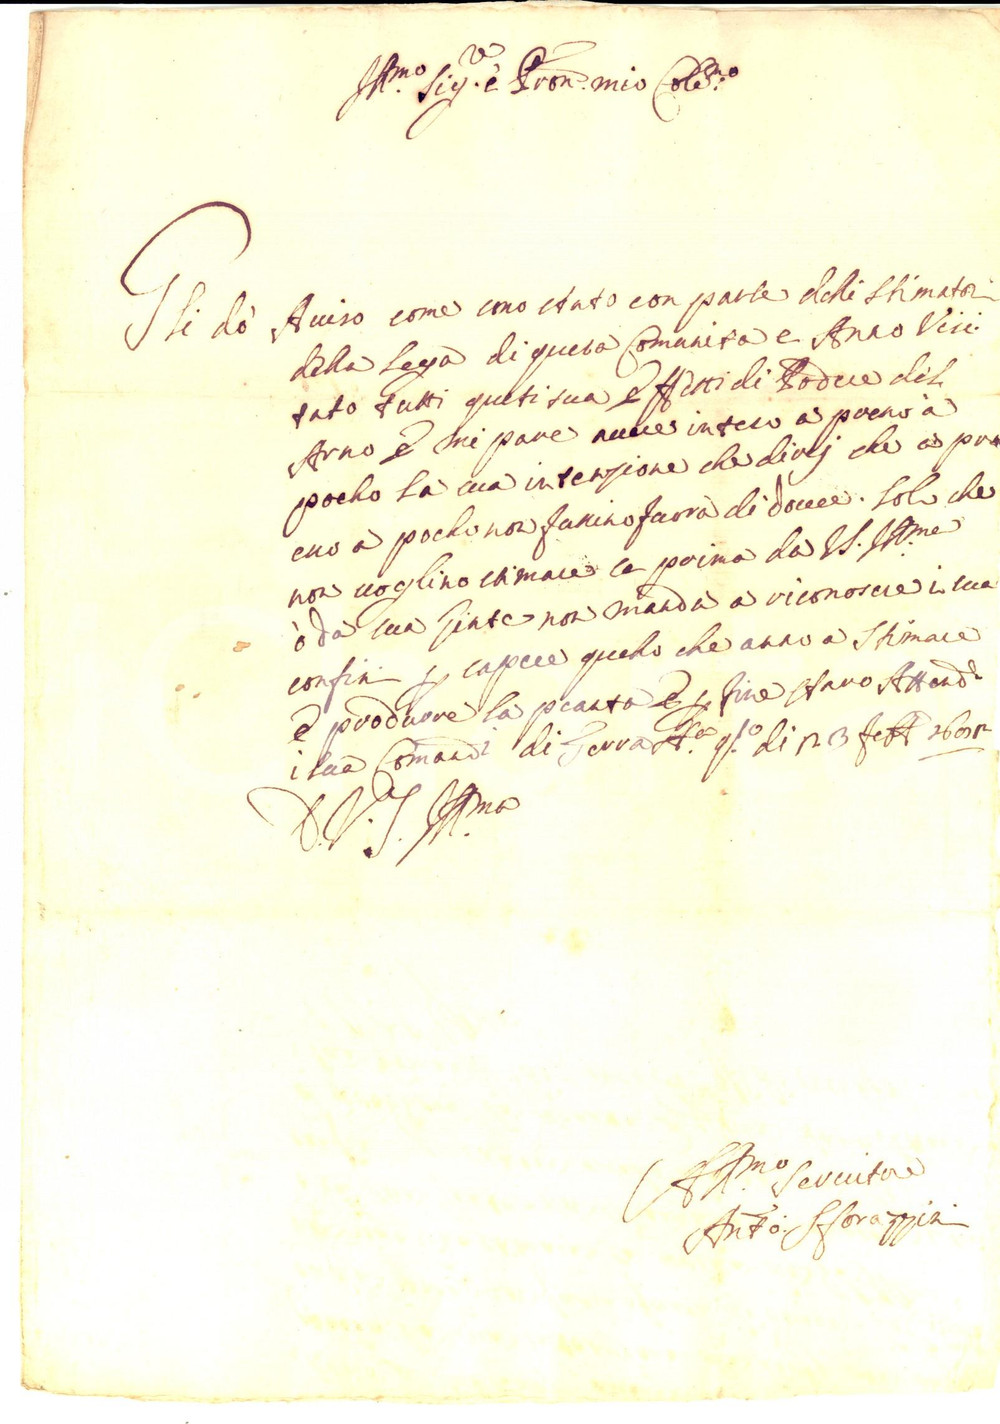 Ill.mo Sig.re è Pron. mio Col.mo
Gli dò Auiso come sono stato con parte delli stimatori
della Lega di questa Comunita e Anno Visi
tato tutti questi sua Effetti di Podere del
Arno E mi pare auere inteso a preso à
pocho la sua intenzione che dirgj che a pre
sso a pocho non fanino fuora di douere. solo che
non uoglino stimare se prima da VS. Ill.me
ò da sua Gente non manda a riconoscere i sua
confini p sapere quello che anno a Stimare
e produrre la pianta E p fine starò Attend.
i sua Comandi di Terra q.to di 23 febb
D. V. S. Ill.ma
Aff.mo Seruitore
Ant.o Sforazzini